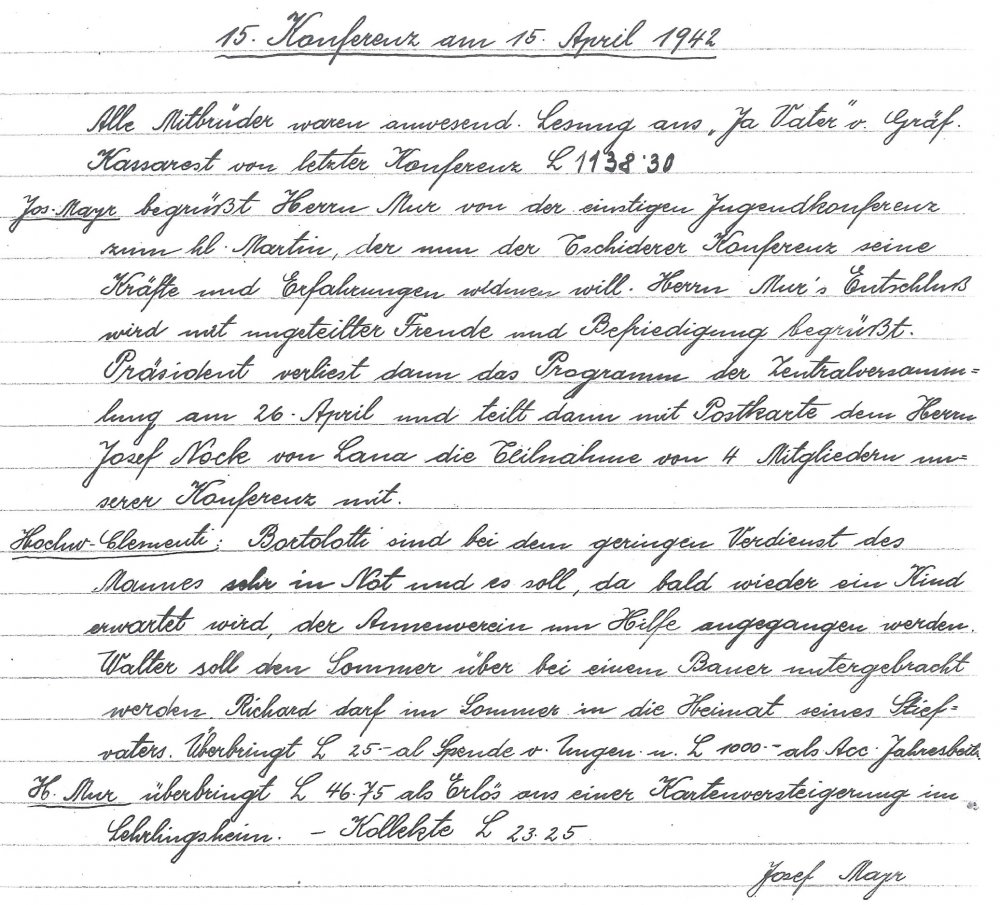 15. Konferenz am 15. April 1942
Alle Mitbrüder waren anwesend. Lesung aus „Ja Vater“ v. Gräf.
Kassarest von letzter Konferenz L 1138·30
Jos. Mayr begrüßt Herrn Mur von der einstigen Jugendkonferenz
zum hl. Martin, der nun der Tschiderer Konferenz seine
Kräfte und Erfahrungen widmen will. Herrn Mur's Entschluß
wird mit ungeteilter Freude und Befriedigung begrüßt.
Präsident verliest dann das Programm der Zentralversamm=
lung am 26. April und teilt dann mit Postkarte dem Herrn
Josef Nock von Lana die Teilnahme von 4 Mitgliedern un=
serer Konferenz mit.
Hochw. Clementi: Bortolotti sind bei dem geringen Verdienst des
Mannes sehr in Not und es soll, da bald wieder ein Kind
erwartet wird, der Annenverein um Hilfe angegangen werden.
Walter soll den Sommer über bei einem Bauer untergebracht
werden. Richard darf im Sommer in die Heimat seines Stief=
vaters. Überbringt L 25.- al Spende v. Ungen. u. L 1000.- als Acc. Jahresbeitr.
H. Mur überbringt L 46.75 als Erlös aus einer Kartenversteigerung im
Lehrlingsheim. – Kollekte L 23.25
Josef Mayr